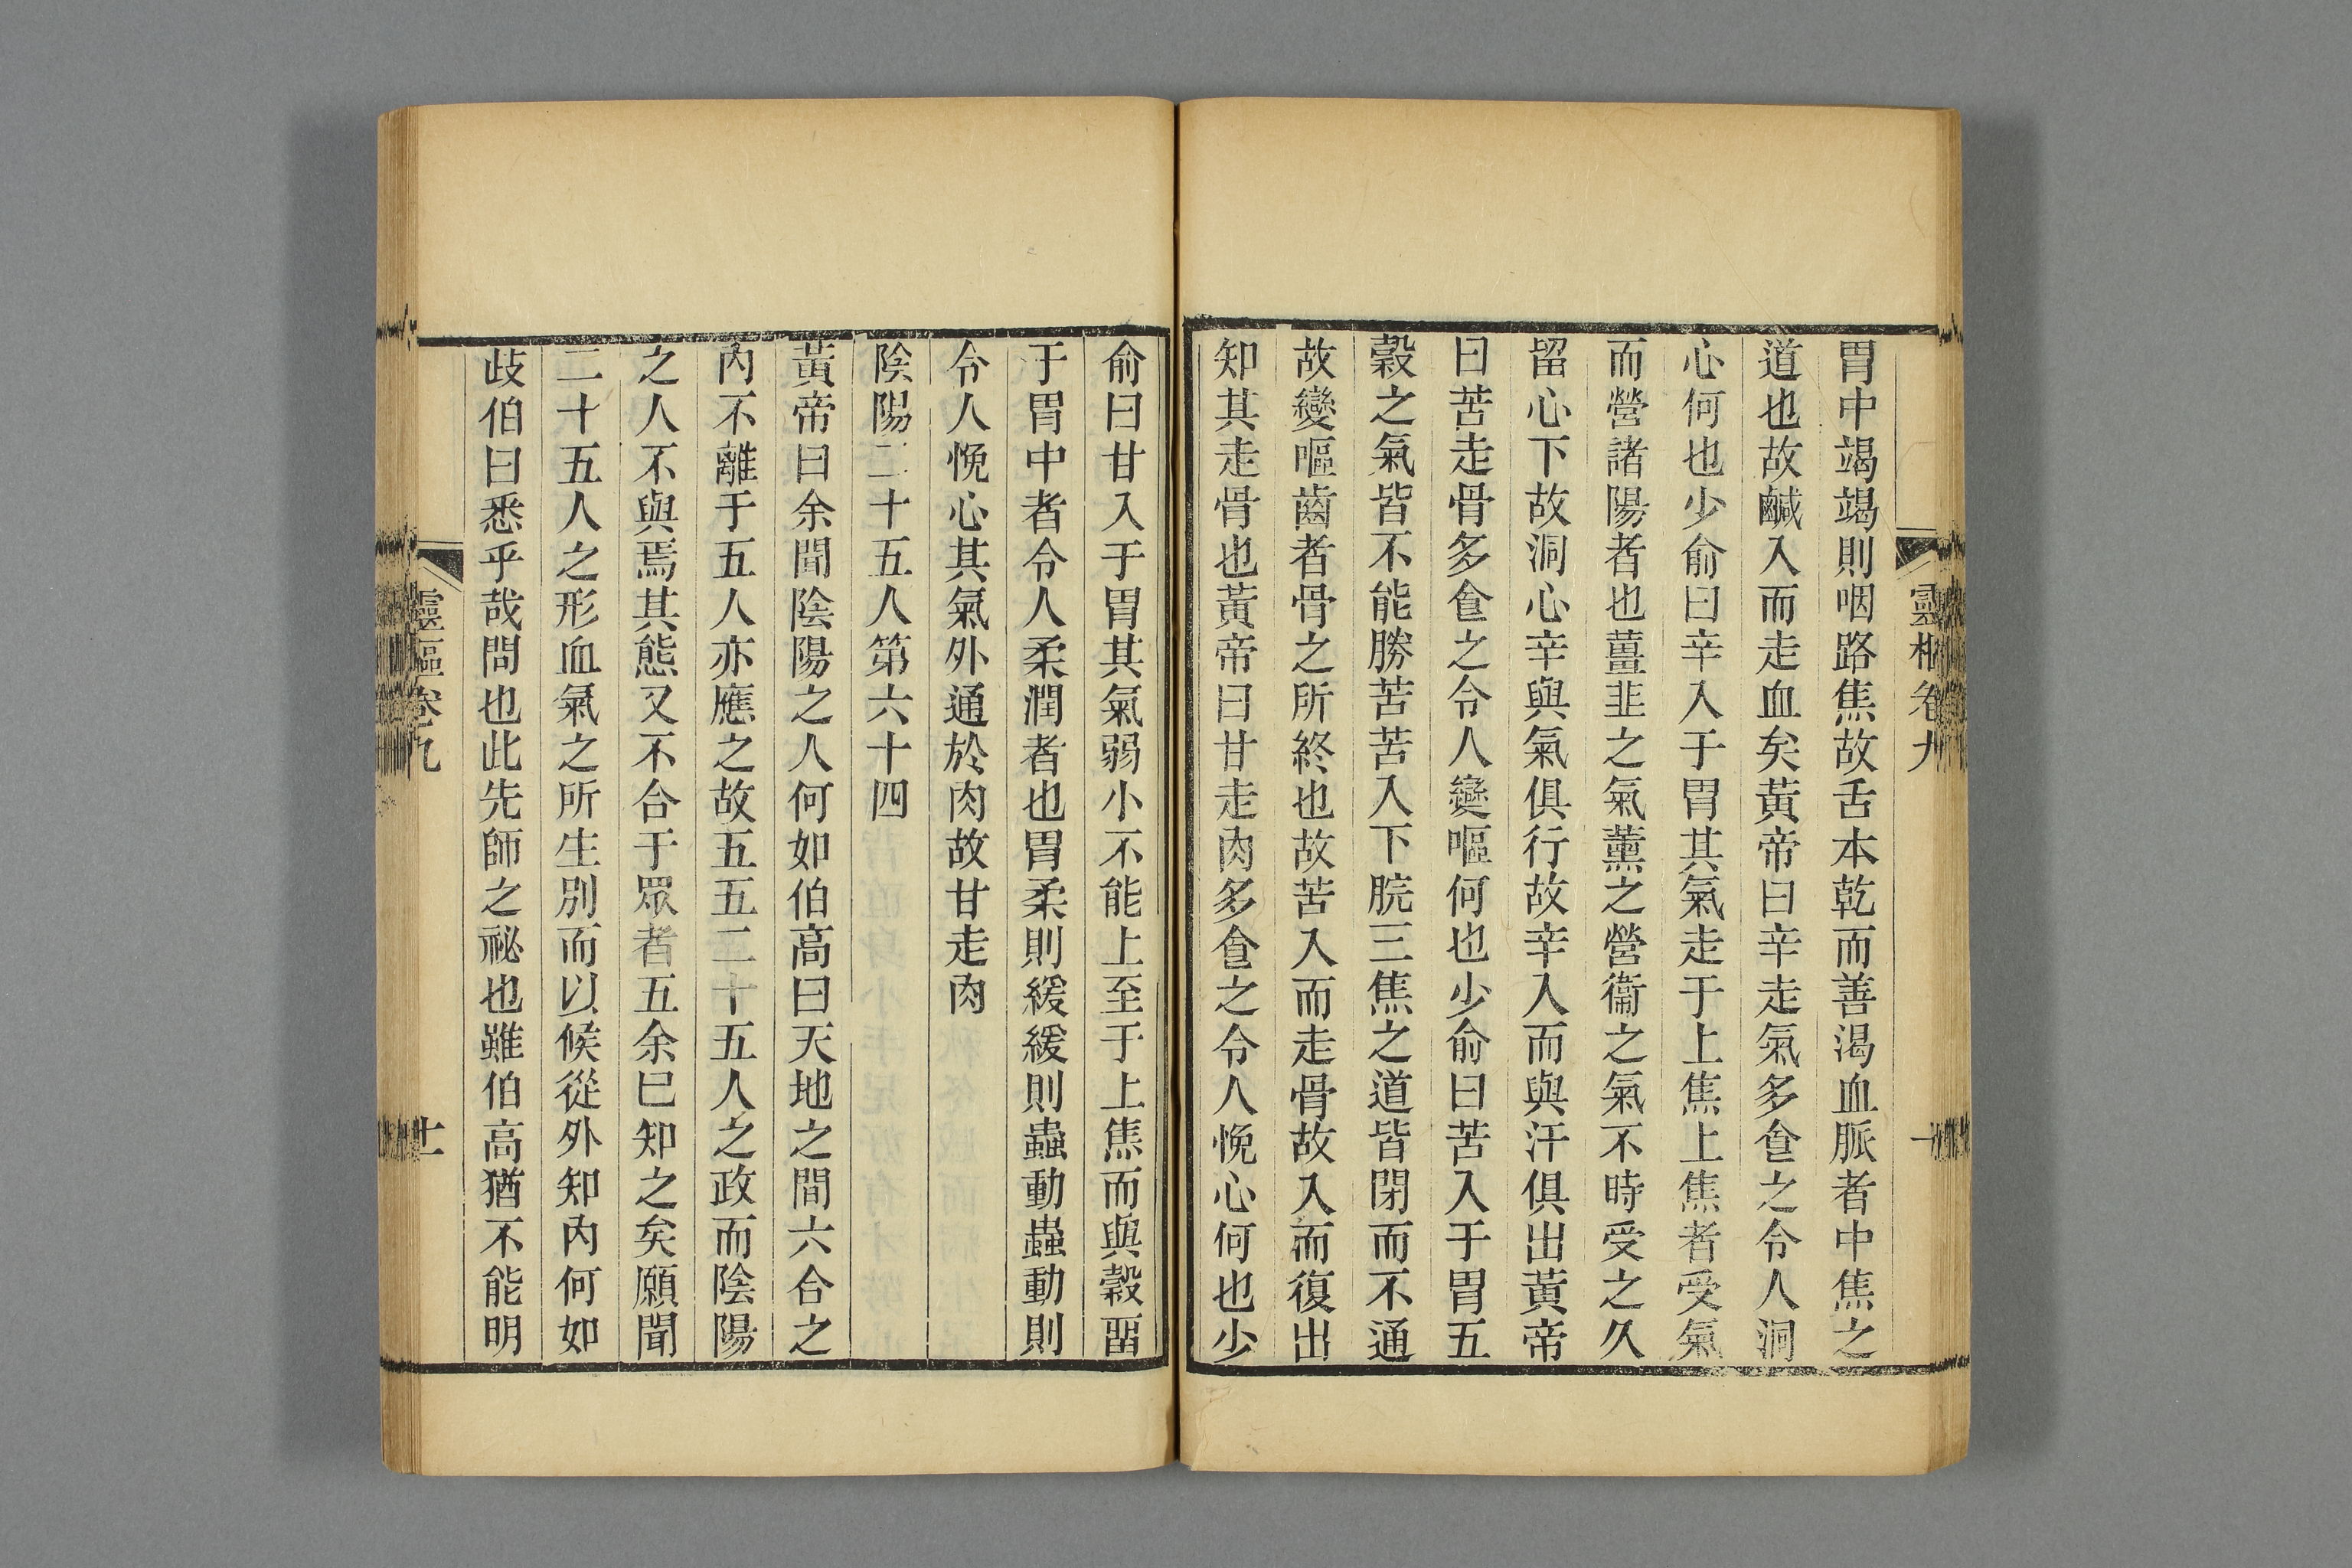 靈樞卷九
胃中竭竭則咽路焦故舌本乾而善渴血脈者中焦之
道也故鹹入而走血矣黃帝曰辛走氣多食之令人洞
心何也少俞曰辛入于胃其氣走于上焦上焦者受氣
而營諸陽者也薑韭之氣薰之營衞之氣不時受之久
留心下故洞心辛與氣俱行故辛入而與汗俱出黃帝
曰苦走骨多食之令人變嘔何也少俞曰苦入于胃五
穀之氣皆不能勝苦苦入下脘三焦之道皆閉而不通
故變嘔齒者骨之所終也故苦入而走骨故入而復出
知其走骨也黃帝曰甘走肉多食之令人悗心何也少
俞曰甘入于胃其氣弱小不能上至于上焦而與穀畱
于胃中者令人柔潤者也胃柔則緩緩則蟲動蟲動則
令人悗心其氣外通於肉故甘走肉
陰陽二十五人第六十四
黃帝曰余聞陰陽之人何如伯高曰天地之間六合之
內不離于五人亦應之故五五二十五人之政而陰陽
之人不與焉其態又不合于眾者五余已知之矣願聞
二十五人之形血氣之所生別而以候從外知內何如
歧伯曰悉乎哉問也此先師之祕也雖伯高猶不能明
靈樞卷九